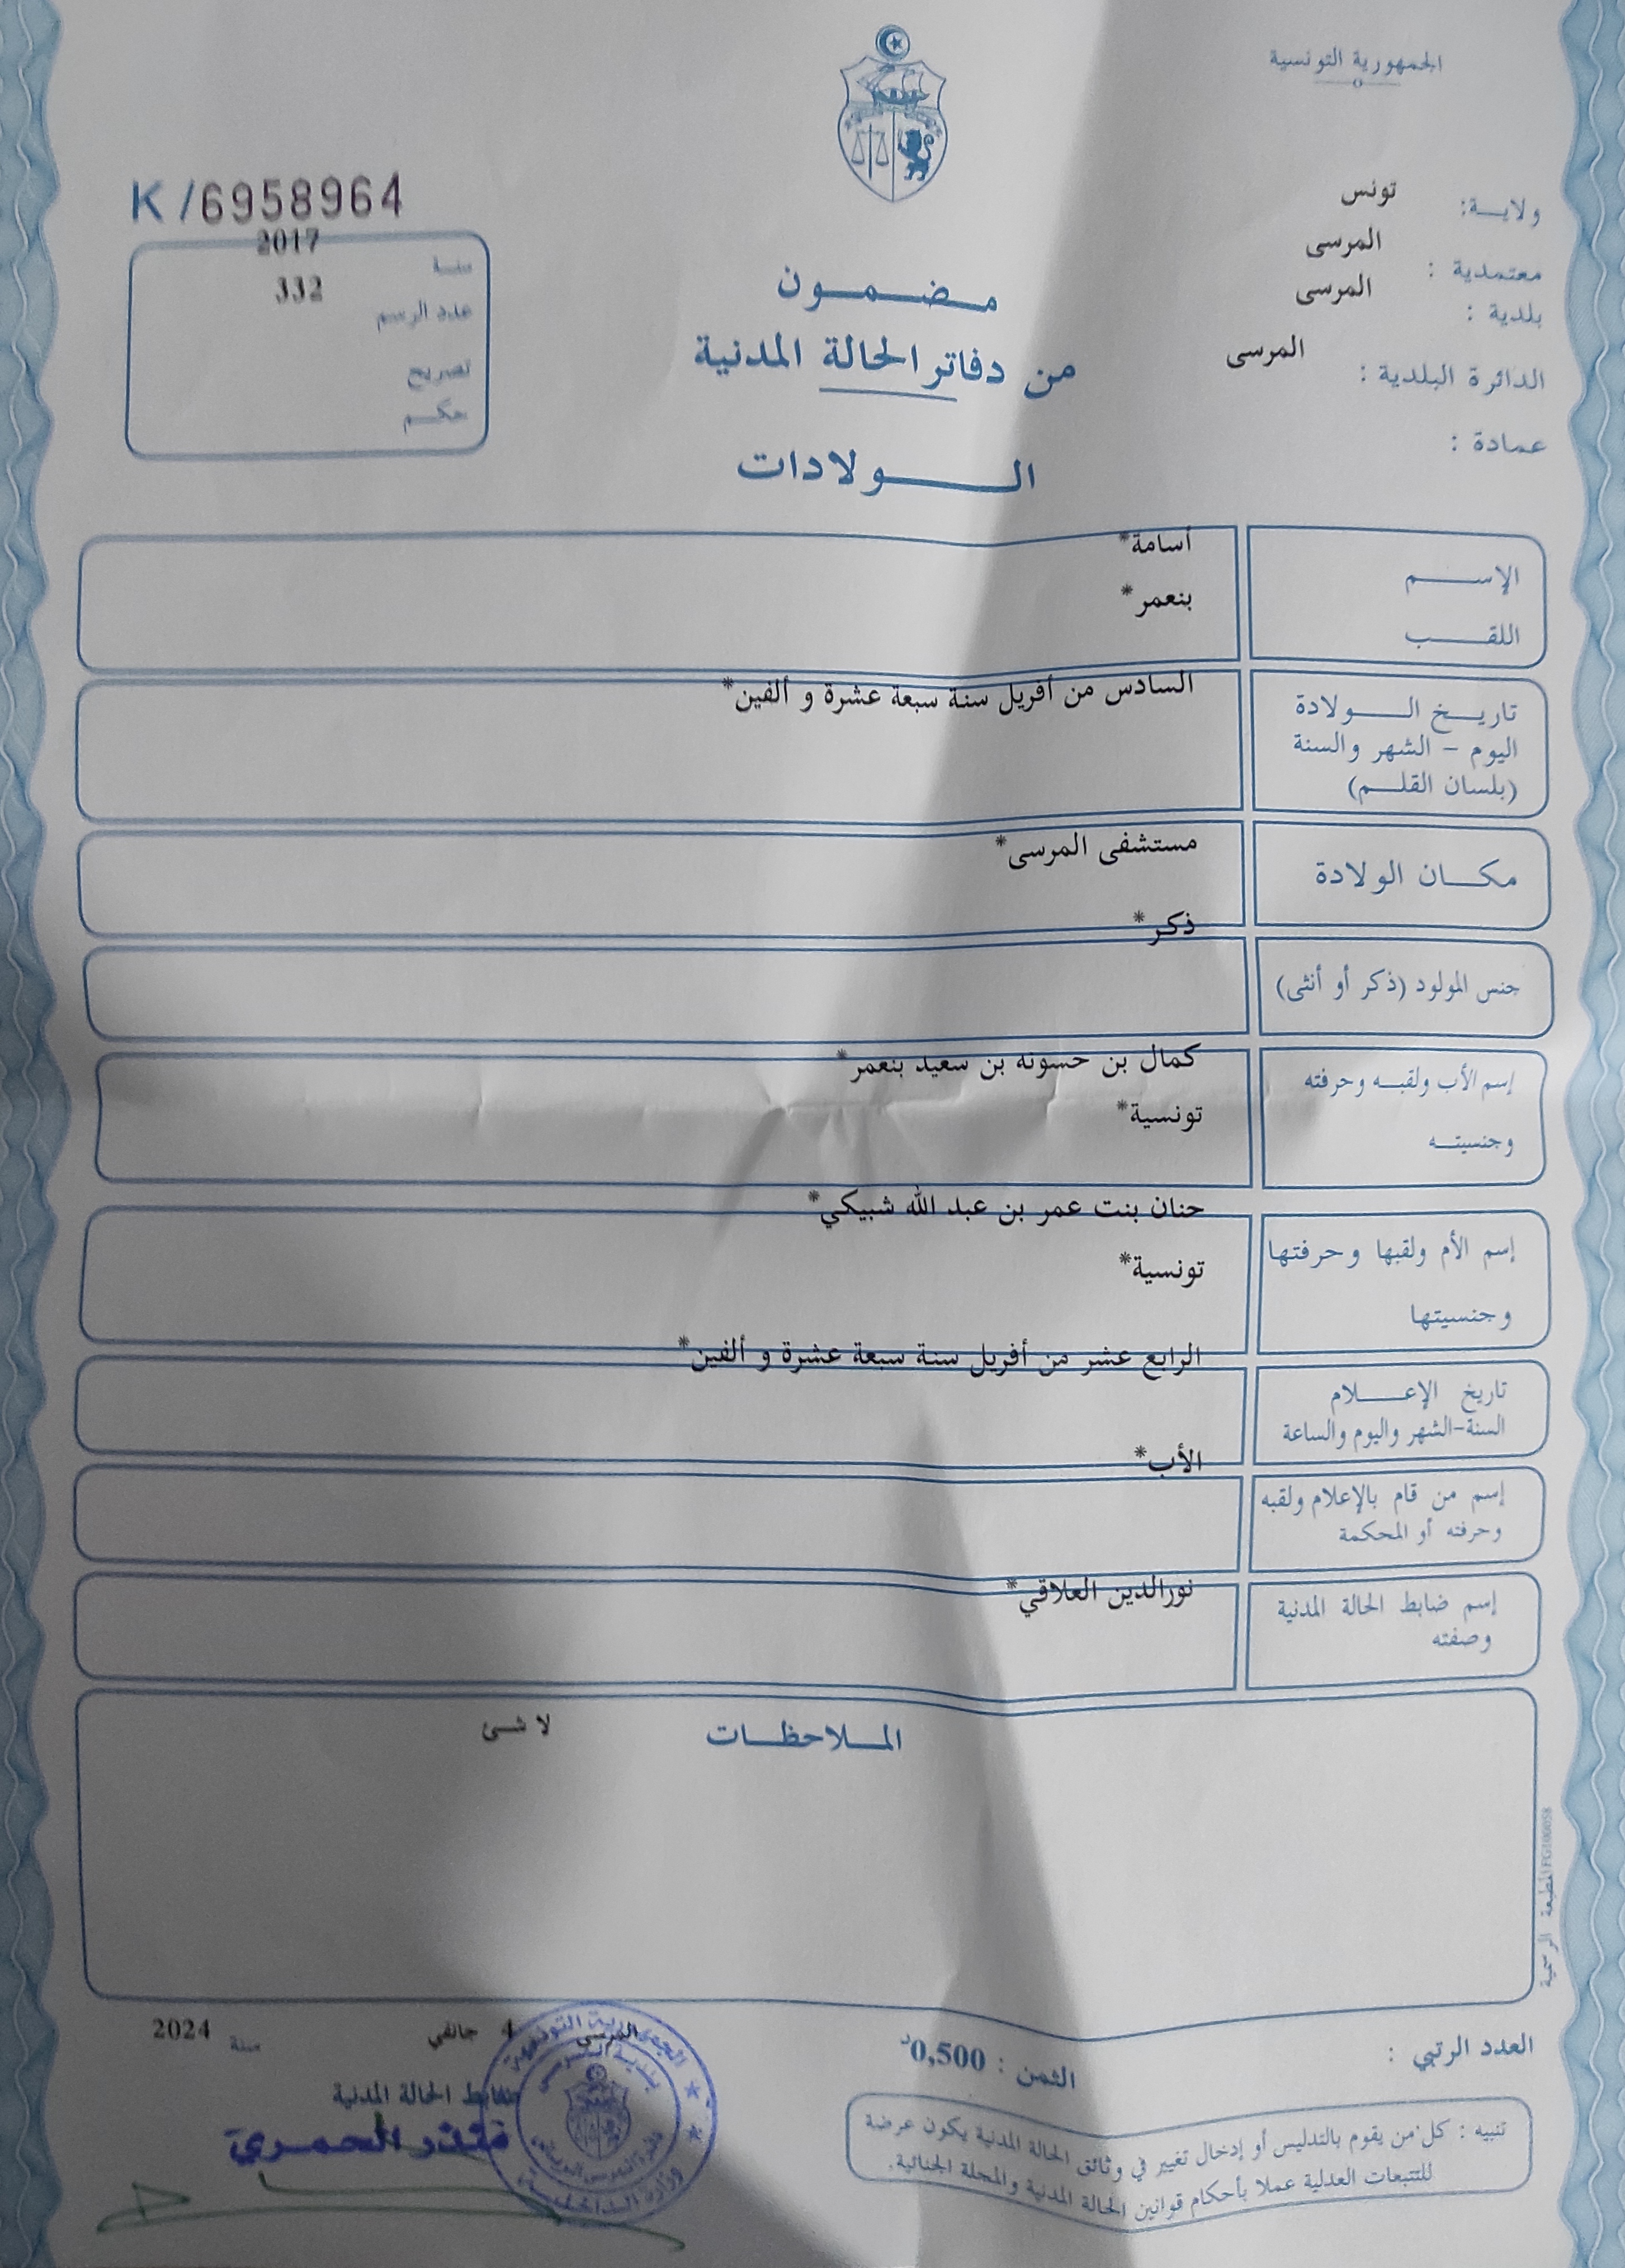 الجمهورية التونسية
ولاية: تونس
معتمدية : المرسى
بلدية : المرسى
الدائرة البلدية : المرسى
عمادة :
K/6958964
سنة 2017
عدد الرسم 332
تصريح
حكم
مضمون
من دفاتر الحالة المدنية
الولادات
الإسم أسامة*
اللقب بنعمر*
تاريخ الولادة السادس من أفريل سنة سبعة عشرة و ألفين*
اليوم - الشهر والسنة
(بلسان القلم)
مكان الولادة مستشفى المرسى*
جنس المولود (ذكر أو أنثى) ذكر*
إسم الأب ولقبه وحرفته كمال بن حسونه بن سعيد بنعمر*
وجنسيته تونسية*
إسم الأم ولقبها وحرفتها حنان بنت عمر بن عبد الله شبيكي*
وجنسيتها تونسية*
تاريخ الإعلام الرابع عشر من أفريل سنة سبعة عشرة و ألفين*
السنة-الشهر واليوم والساعة
إسم من قام بالإعلام ولقبه الأب*
وحرفته أو المحكمة
إسم ضابط الحالة المدنية نورالدين العلاقي*
وصفته
الملاحظات لا شئ
المطبعة الرسمية
العدد الرتبي :
الثمن : 0,500د
المرسى 4 جانفي سنة 2024
ضابط الحالة المدنية
الحمري
الجمهورية التونسية
بلدية المرسى
وزارة الداخلية
تنبيه : كل من يقوم بالتدليس أو إدخال تغيير في وثائق الحالة المدنية يكون عرضة
للتتبعات العدلية عملا بأحكام قوانين الحالة المدنية والمجلة الجنائية.